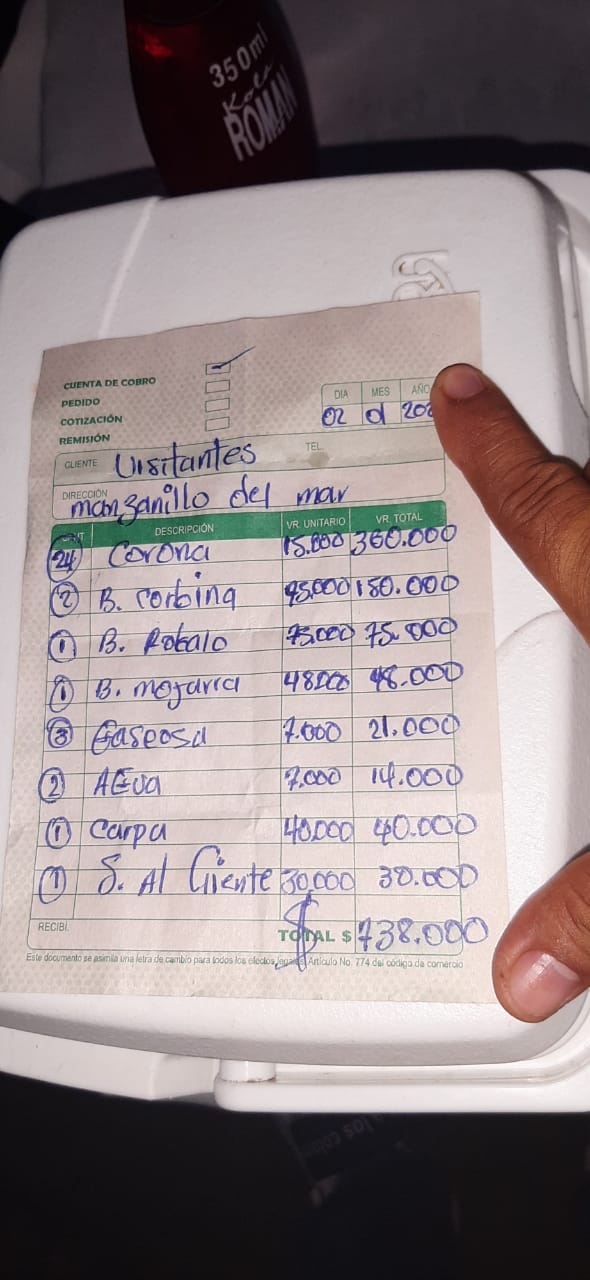 350ml
Kola
ROMAN
CUENTA DE COBRO
PEDIDO
COTIZACIÓN
REMISIÓN
DIA MES AÑO
02 01 202
CLIENTE Visitantes TEL.
DIRECCIÓN manzanillo del mar
CANT DESCRIPCIÓN VR. UNITARIO VR. TOTAL
24 Corona 15.000 360.000
2 B. corbina 75,000 150.000
1 B. Robalo 75.000 75.000
1 B. mojarra 48000 48.000
3 Gaseosa 7.000 21.000
2 AGua 7,000 14.000
1 Carpa 40,000 40.000
1 S. Al Cliente 30,000 30.000
RECIBÍ. TOTAL $ $738.000
Este documento se asimila una letra de cambio para todos los efectos legales. Artículo No. 774 del código de comercio